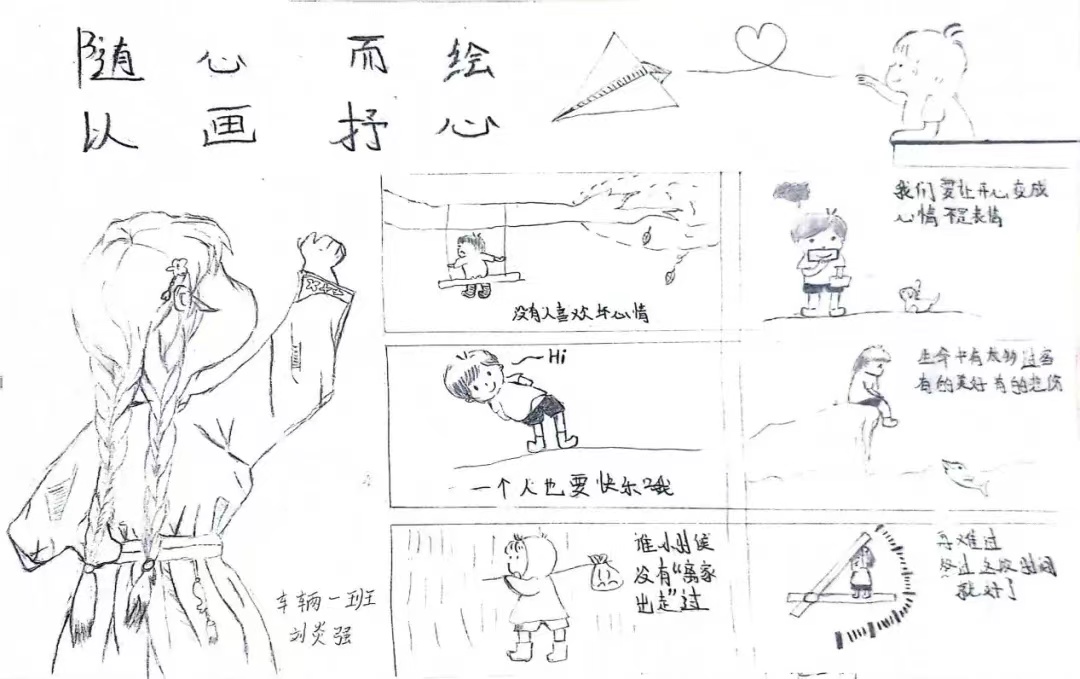 随心而绘
以画抒心
没有人喜欢坏心情
我们要让开心变成
心情不是表情
Hi
一个人也要快乐哦
生命中有太多过客
有的美好有的悲伤
谁小时候
没有“离家
出走”过
再难过
熬过这段时间
就好了
车辆一班
刘炎强